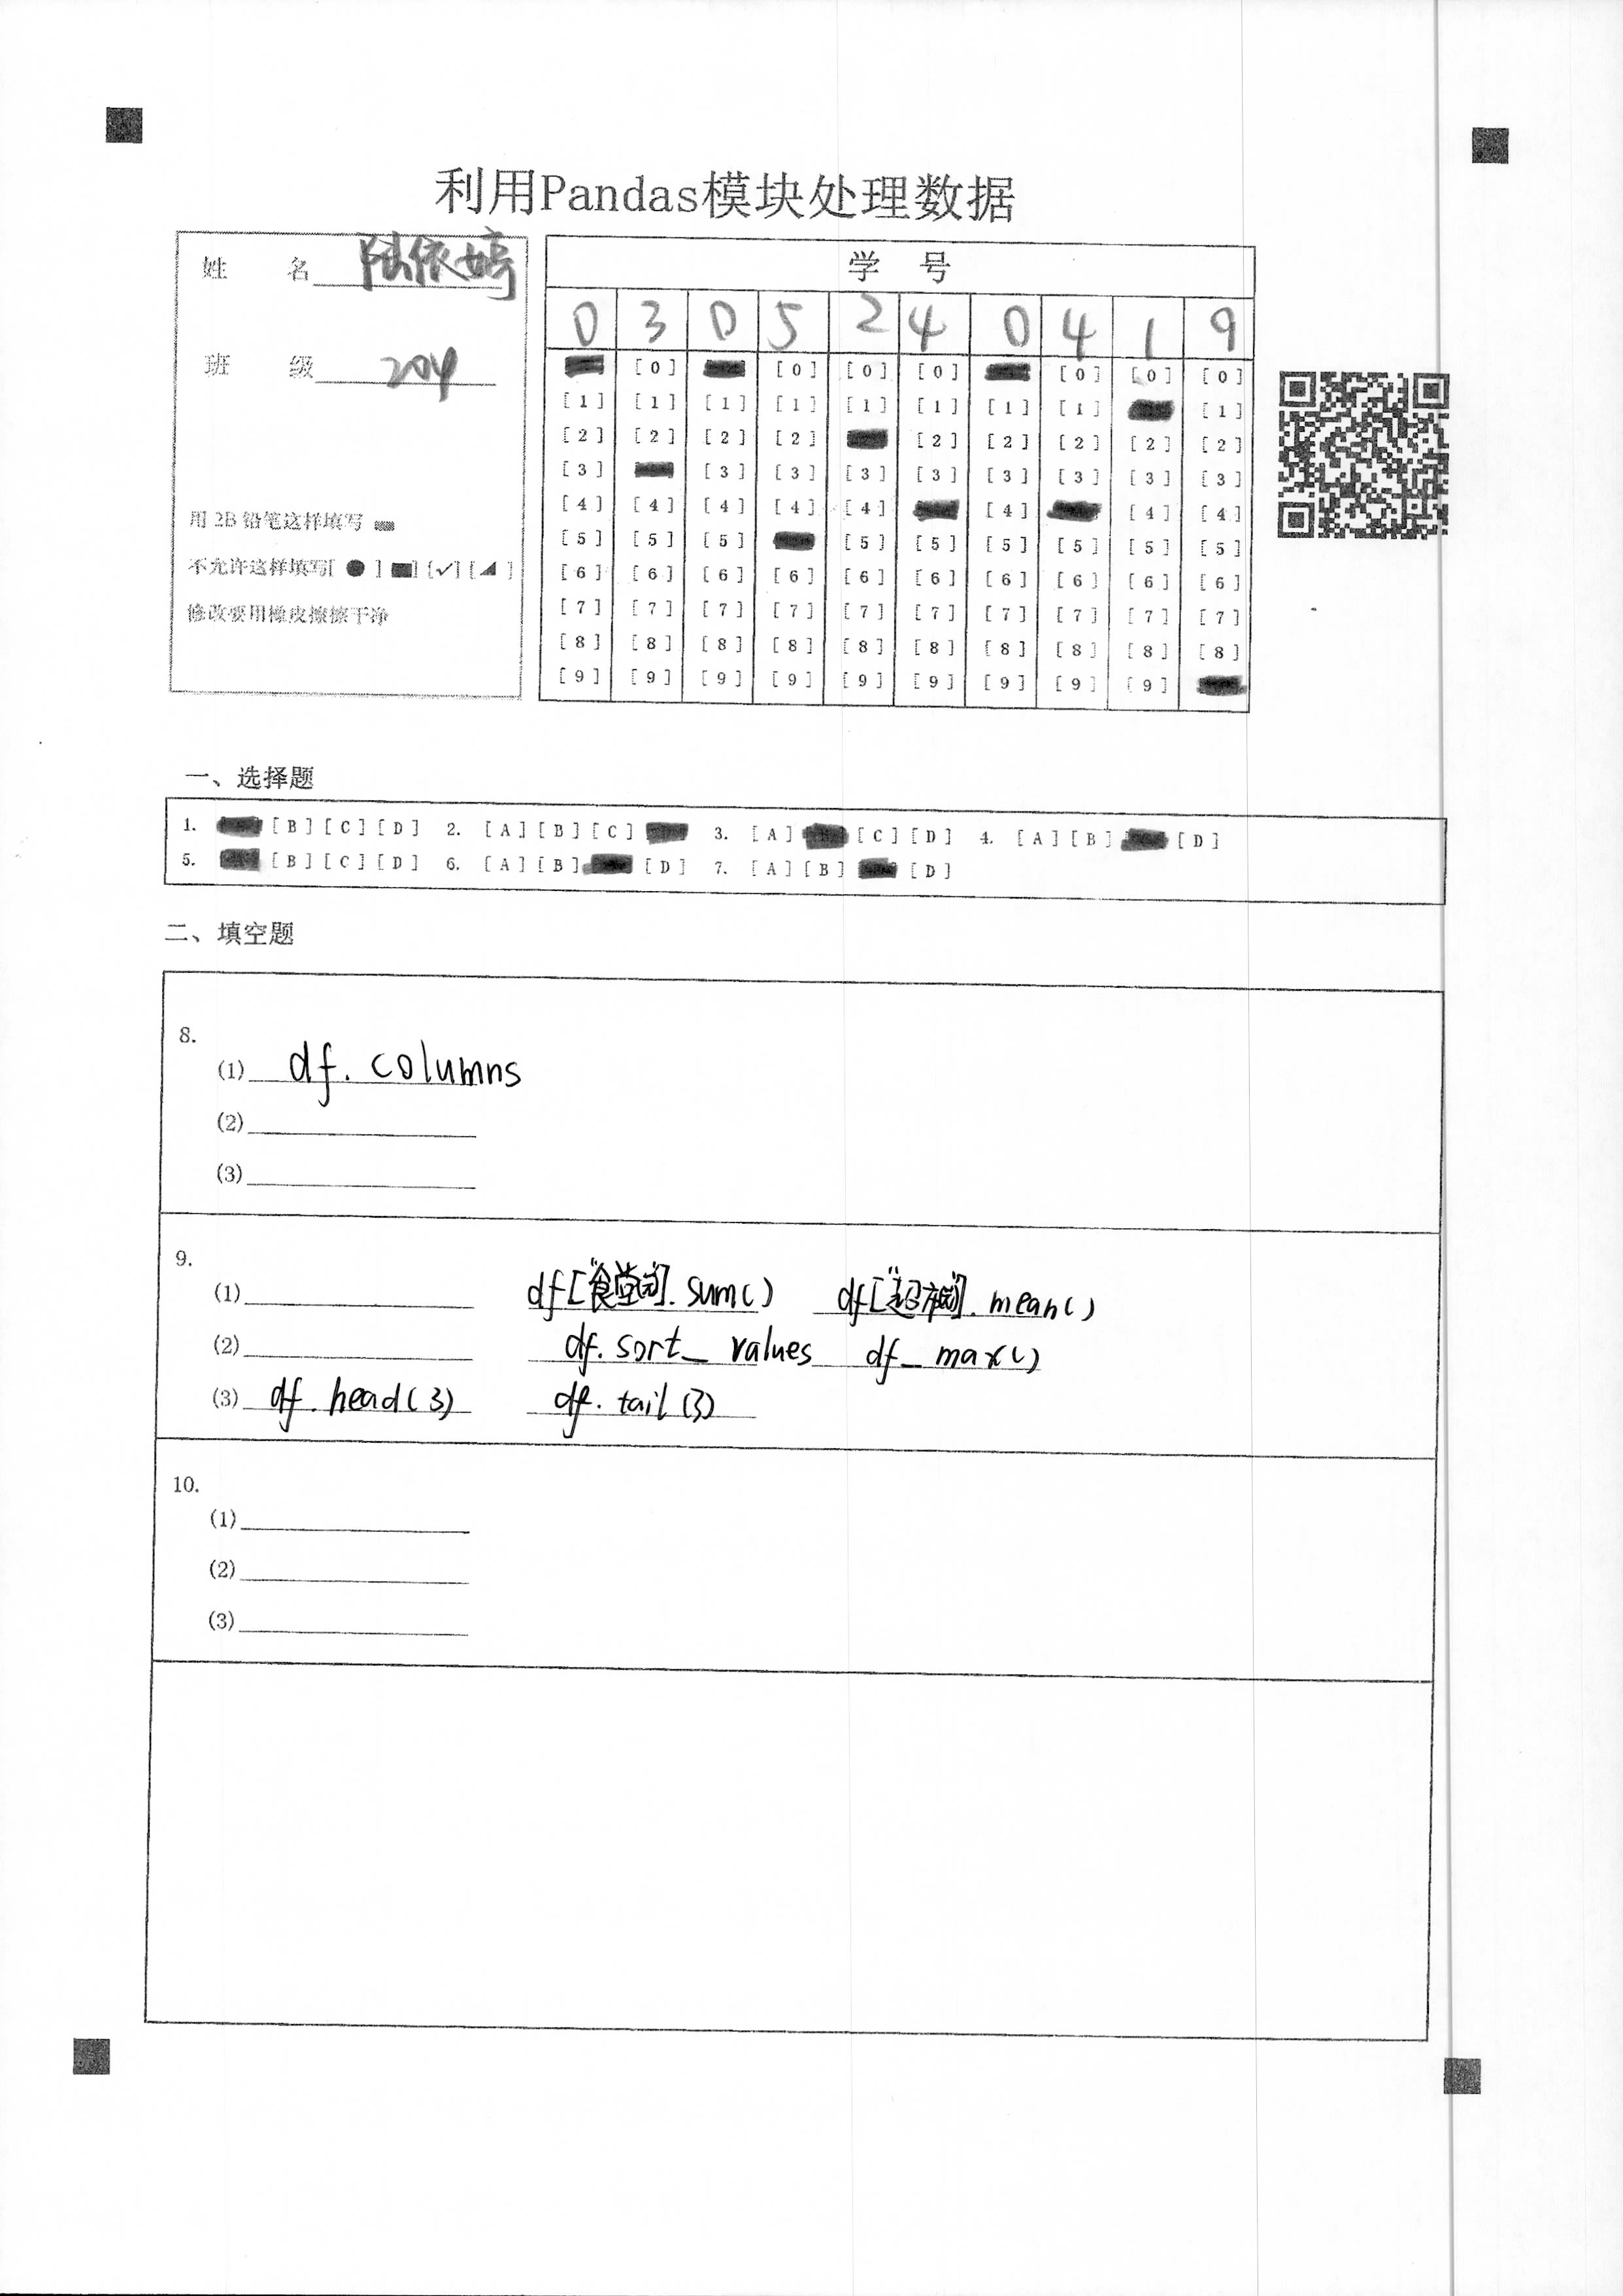 利用Pandas模块处理数据
姓 名 陆依婷
班 级 204
用 2B 铅笔这样填写
不允许这样填写[ ● ] [■] [✓] [◢ ]
修改要用橡皮擦擦干净
学 号
0 3 0 5 2 4 0 4 1 9
[0] [0] [0] [0] [0] [0] [0]
[1] [1] [1] [1] [1] [1] [1] [1] [1]
[2] [2] [2] [2] [2] [2] [2] [2] [2]
[3] [3] [3] [3] [3] [3] [3] [3] [3]
[4] [4] [4] [4] [4] [4] [4] [4]
[5] [5] [5] [5] [5] [5] [5] [5] [5]
[6] [6] [6] [6] [6] [6] [6] [6] [6] [6]
[7] [7] [7] [7] [7] [7] [7] [7] [7] [7]
[8] [8] [8] [8] [8] [8] [8] [8] [8] [8]
[9] [9] [9] [9] [9] [9] [9] [9] [9]
一、选择题
1. [B] [C] [D] 2. [A] [B] [C] 3. [A] [C] [D] 4. [A] [B] [D]
5. [B] [C] [D] 6. [A] [B] [D] 7. [A] [B] [D]
二、填空题
8.
(1) df. columns
(2)
(3)
9.
(1) df["食堂"]. sum() df["超市"]. mean()
(2) df. sort_ values df_ max()
(3) df. head(3) df. tail(3)
10.
(1)
(2)
(3)